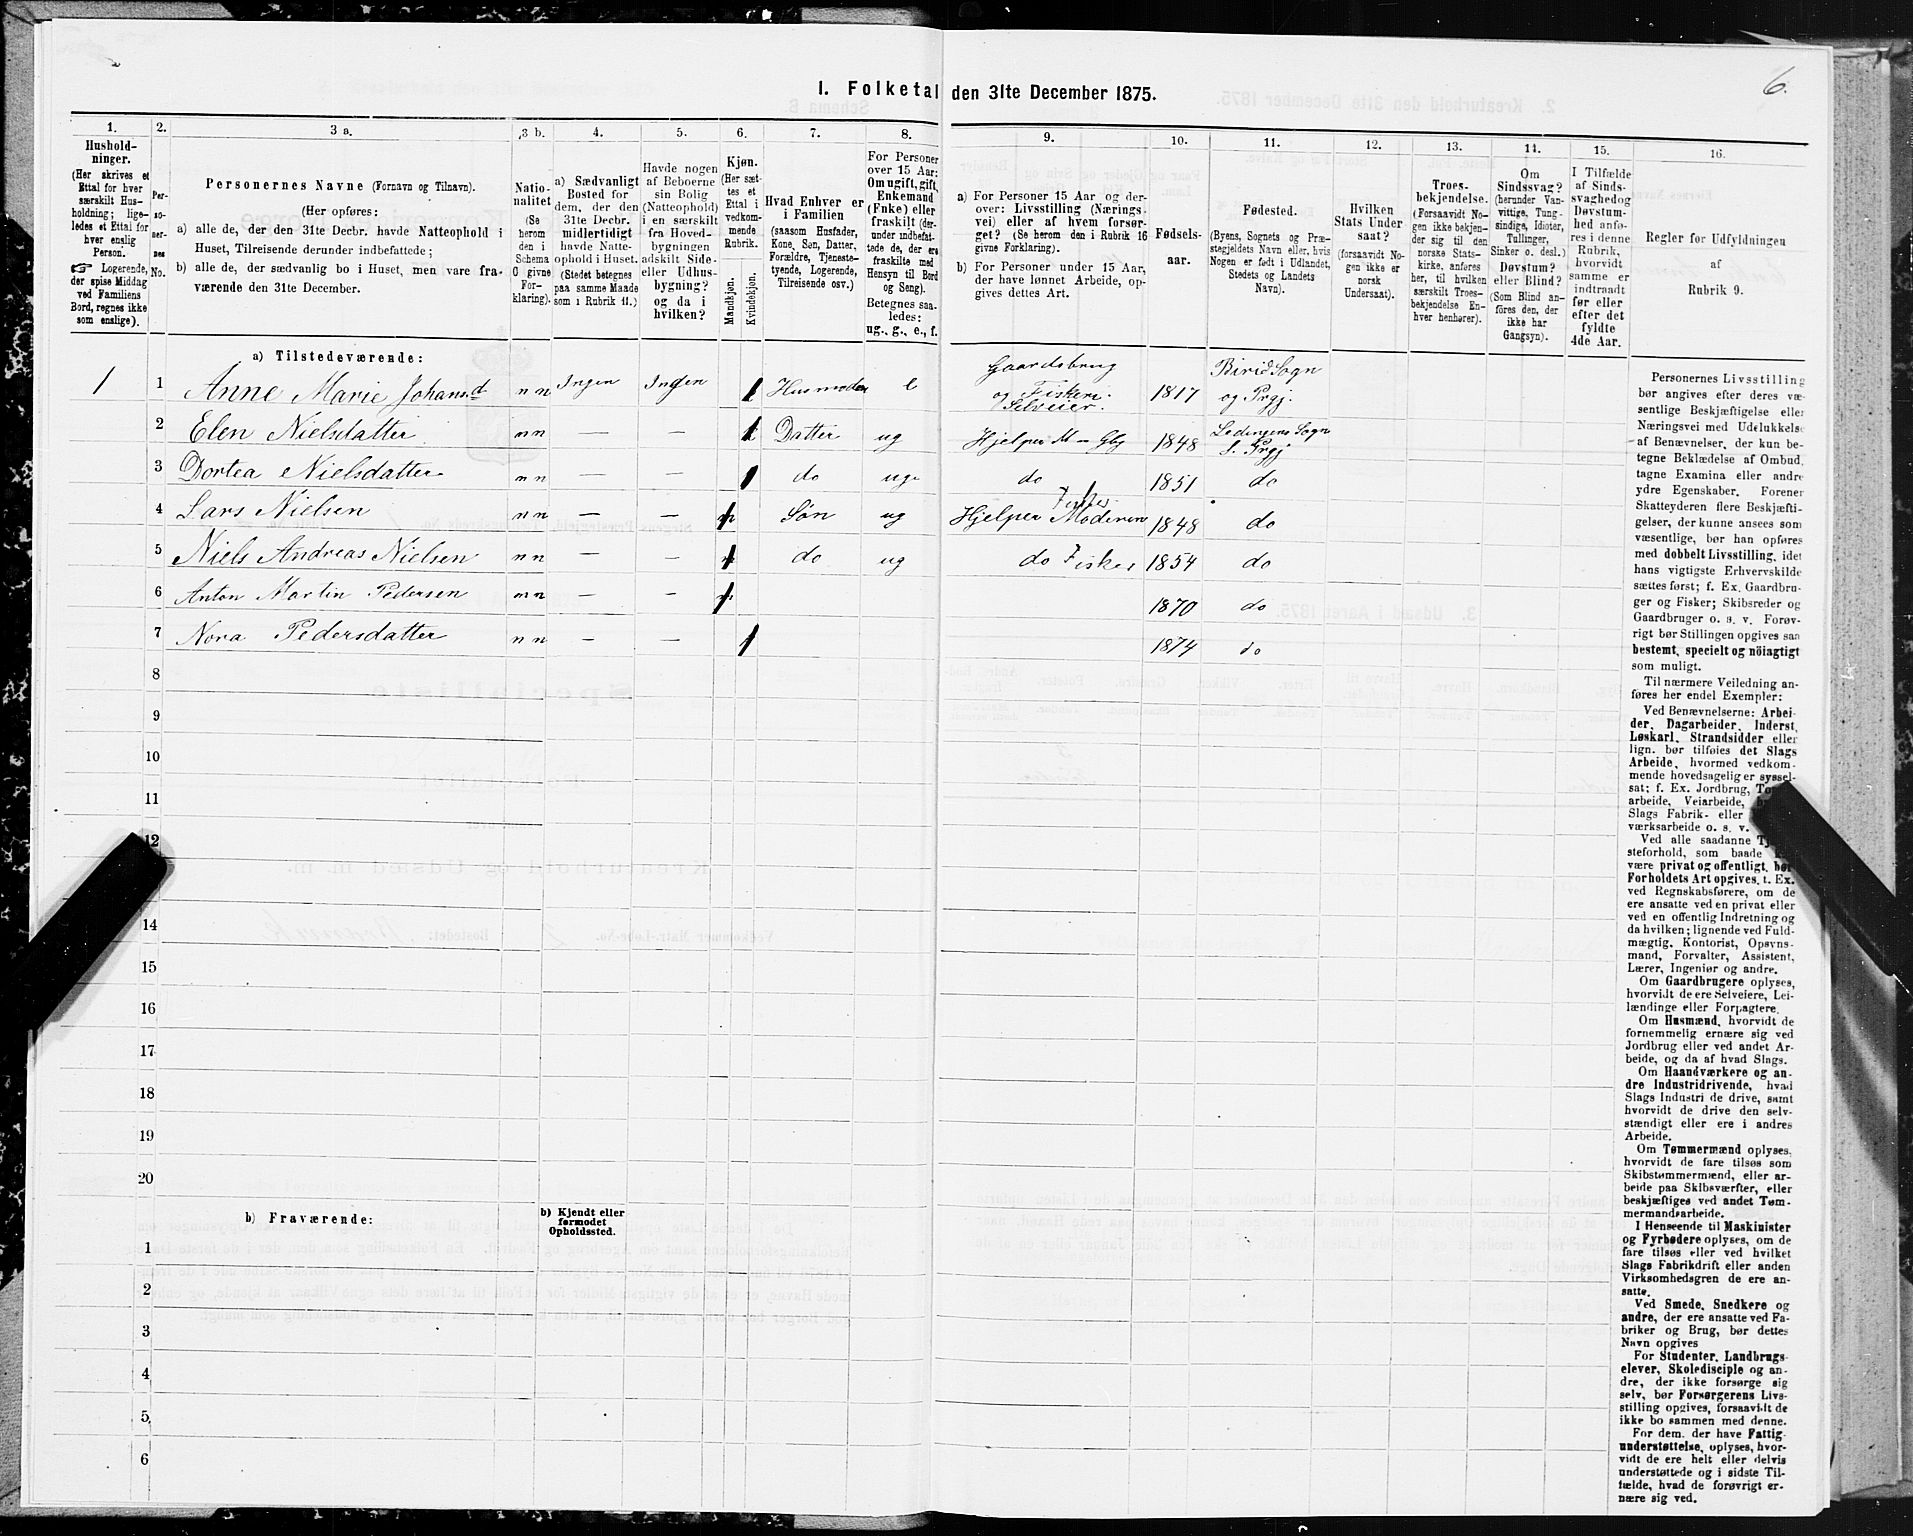 6.
I. Folketal den 31te December 1875.
1. 2. 3 a. 3 b. 4. 5. 6. 7. 8. 9. 10. 11. 12. 13. 14. 15. 16.
Hushold-
ninger.
(Her skrives et
Ettal for hver
særskilt Hus-
holdning; lige-
ledes et Ettal for
hver enslig
Person.
☞ Logerende,
der spise Middag
ved Familiens
Bord, regnes ikke
som enslige).
Per-
so-
ner-
nes
No.
Personernes Navne (Fornavn og Tilnavn).
(Her opføres:
a) alle de, der den 31te Decbr. havde Natteophold i
Huset, Tilreisende derunder indbefattede;
b) alle de, der sædvanlig bo i Huset, men vare fra-
værende den 31te December.
Natio-
nalitet
(Se
herom
den i
Schema
O givne
For-
klaring).
a) Sædvanligt
Bosted for
dem, der den
31te Decbr.
midlertidigt
havde Natte-
ophold i Huset.
(Stedet betegnes
paa samme Maade
som i Rubrik 11.)
Havde nogen
af Beboerne
sin Bolig
(Natteophold)
i en særskilt
fra Hoved-
bygningen
adskilt Side-
eller Udhus-
bygning?
og da i
hvilken?
Kjøn.
(Her sæt-
tes et
Ettal i
vedkom-
mende
Rubrik.
Mandkjøn.
Kvindekjøn.
Hvad Enhver er
i Familien
(saasom Husfader,
Kone, Søn, Datter,
Forældre, Tjeneste-
tyende, Logerende,
Tilreisende osv.)
For Personer
over 15 Aar:
Om ugift, gift,
Enkemand
(Enke) eller
fraskilt (der-
under indbefat-
tede de, der ere
fraskilte med
Hensyn til Bord
og Seng).
Betegnes saa-
ledes:
ug., g., e., f.
a) For Personer 15 Aar og der-
over: Livsstilling (Nærings-
vei) eller af hvem forsør-
get? (Se herom den i Rubrik 16
givne Forklaring).
b) For Personer under 15 Aar,
der have lønnet Arbeide, op-
gives dettes Art.
Fødsels-
aar.
Fødested.
(Byens, Sognets og Præ-
stegjeldets Navn eller, hvis
Nogen er født i Udlandet,
Stedets og Landets
Navn).
Hvilken
Stats Under
saat?
(forsaavidt No-
gen ikke er
norsk
Undersaat).
Troes-
bekjendelse.
(Forsaavidt No-
gen ikke bekjen-
der sig til den
norske Stats-
kirke, anføres
her, til hvilken
særskilt Troes-
bekjendelse En-
hver henhører).
Om
Sindssvag?
(herunder Van-
vittige, Tung-
sindige, Idioter,
Tullinger,
Sinker o. desl.)
Døvstum?
eller Blind?
(Som Blind an-
føres den, der
ikke har
Gangsyn).
I Tilfælde
af Sinds-
svaghed og
Døvstum-
hed anfø-
res i denne
Rubrik,
hvorvidt
samme er
indtraadt
før eller
efter det
fyldte
4de Aar.
Regler for Udfyldningen
af
Rubrik 9.
a) Tilstedeværende:
1 1 Anne Marie Johansd. n n Ingen Ingen 1 Husmoder e Gaardsbrug og Fiskeri. Selveier. 1817 Birid Sogn og Prgj.
2 Elen Nielsdatter n n — — 1 Datter ug Hjelper M — Gbg 1848 Lødingens Sogn s. Prgj
3 Dortea Nielsdatter n n — — 1 do ug. do 1851 do
4 Lars Nielsen n n — — 1 Søn ug Hjelper Moderen Fisker 1848 do
5 Niels Andreas Nielsen n n — — 1 do ug do Fisker 1854 do
6 Anton Martin Pedersen n n — — 1 1870 do
7 Nora Pedersdatter n n — — 1 1874 do
8
9
10
11
12
14
15
16
17
18
19
20
b) Fraværende:
b) Kjendt eller
formodet
Opholdssted.
1
2
3
4
5
6
Personernes Livsstilling
bør angives efter deres væ-
sentlige Beskjæftigelse eller
Næringsvei med Udelukkelse
af Benævnelser, der kun be-
tegne Beklædelse af Ombud,
tagne Examina eller andre
ydre Egenskaber. Forener
Skatteyderen flere Beskjæfti-
gelser, der kunne ansees som
væsentlige, bør han opføres
med dobbelt Livsstilling, idet
hans vigtigste Erhvervskilde
sættes først; f. Ex. Gaardbru-
ger og Fisker; Skibsreder og
Gaardbruger o. s. v. Forøv-
rigt bør Stillingen opgives saa
bestemt, specielt og nöiagtigt
som muligt.
Til nærmere Veiledning an-
føres her endel Exempler:
Ved Benævnelserne: Arbei-
der, Dagarbeider, Inderst,
Løskarl, Strandsidder eller
lign. bør tilføies det Slags
Arbeide, hvormed vedkom-
mende hovedsagelig er syssel-
sat; f. Ex. Jordbrug,
arbeide, Veiarbeide,
Slags Fabrik- eller
værksarbeide o. s. v.
Ved alle saadanne
steforhold, som baade
være privat og offentligt, bør
Forholdets Art opgives, t. Ex.
ved Regnskabsførere, om de
ere ansatte ved en privat eller
ved en offentlig Indretning og
da hvilken; lignende ved Fuld-
mægtig, Kontorist, Opsyns-
mand, Forvalter, Assistent,
Lærer, Ingeniør og andre.
Om Gaardbrugere oplyses,
hvorvidt de ere Selveiere, Lei-
lændinge eller Forpagtere.
Om Husmænd, hvorvidt de
fornemmelig ernære sig ved
Jordbrug eller ved andet Ar-
beide, og da af hvad Slags.
Om Haandværkere og an-
dre Industridrivende, hvad
Slags Industri de drive, samt
hvorvidt de drive den selv-
stændigt eller ere i andres
Arbeide.
Om Tømmermænd oplyses,
hvorvidt de fare tilsøs som
Skibstømmermænd, eller ar-
beide paa Skibsværfter, eller
beskjæftiges ved andet Tøm-
mermandsarbeide.
I Henseende til Maskinister
og Fyrbødere oplyses, om de
fare tilsøs eller ved hvilket
Slags Fabrikdrift eller anden
Virksomhedsgren de ere an-
satte.
Ved Smede, Snedkere og
andre, der ere ansatte ved Fa-
briker og Brug, bør dettes
Navn opgives
For Studenter, Landbrugs-
elever, Skoledisciple og an-
dre, der ikke forsørge sig
selv, bør Forsørgerens Livs-
stilling opgives, forsaavidt de
ikke bo sammen med denne.
For dem, der have Fattig-
understøttelse, oplyses, hvor-
vidt de ere helt eller delvis
understøttede og i sidste Til-
fælde, hvad de forøvrigt er-
nære sig ved.